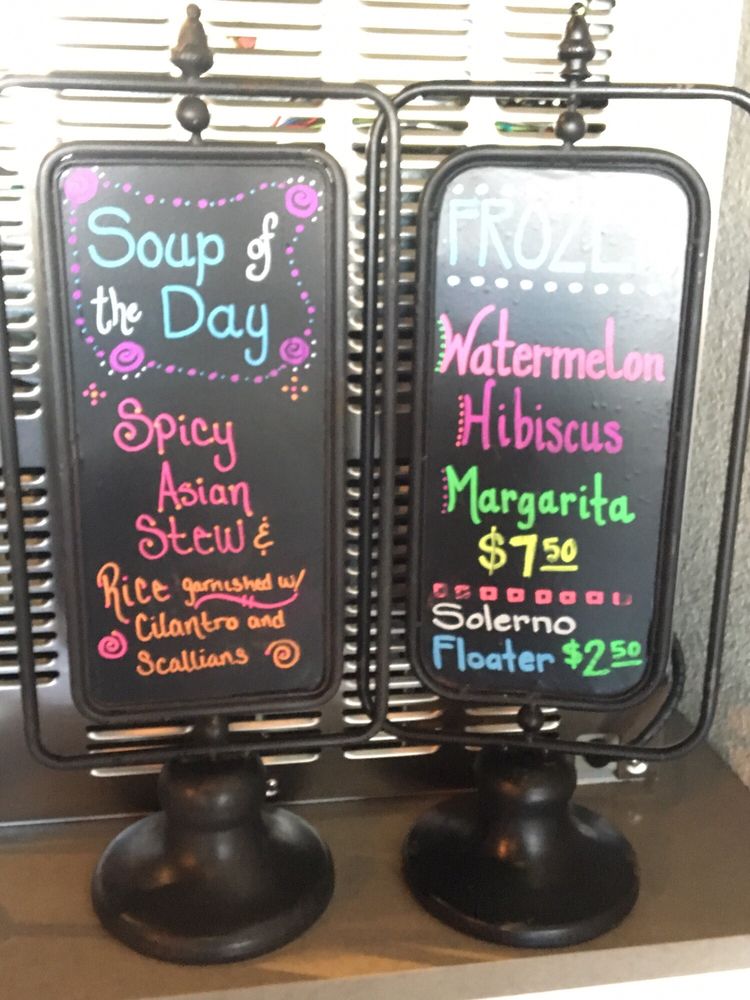 Soup of
the Day
Spicy
Asian
Stew &
Rice garnished w/
Cilantro and
Scallians
FROZEN
Watermelon
Hibiscus
Margarita
$7 50
Solerno
Floater $2 50